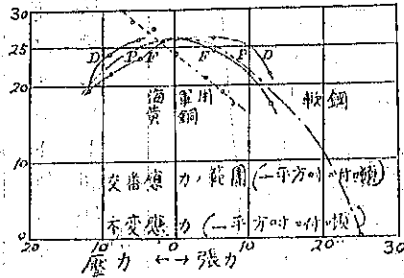 30
25
D P F F P D
20
海軍用
黄銅
軟鋼
10
交番應力ノ範圍(一平方吋ニ付噸)
不変應力(一平方吋ニ付噸)
0
20 10 0 10 20 30
壓力 ←→ 張力